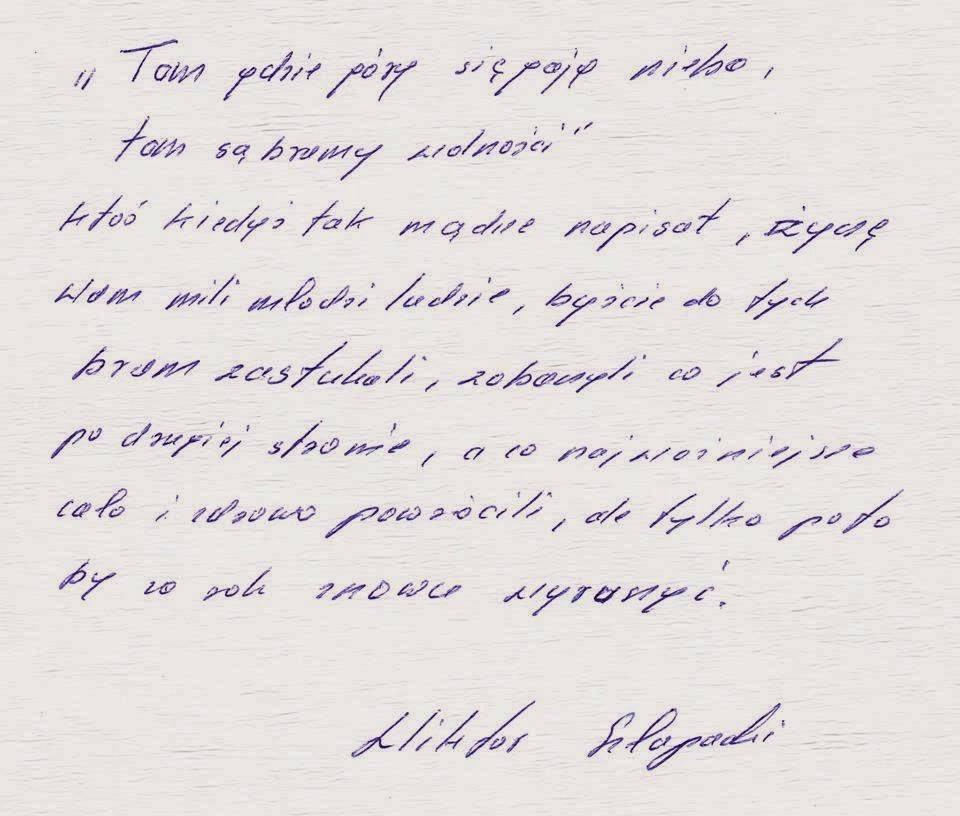 „Tam gdzie góry sięgają nieba,
tam są bramy wolności"
ktoś kiedyś tak mądrze napisał, życzę
Wam mili młodzi ludzie, byście do tych
bram zastukali, zobaczyli co jest
po drugiej stronie, a co najważniejsze
cało i zdrowo powrócili, ale tylko po to
by za rok znowu wyruszyć.
Wiktor